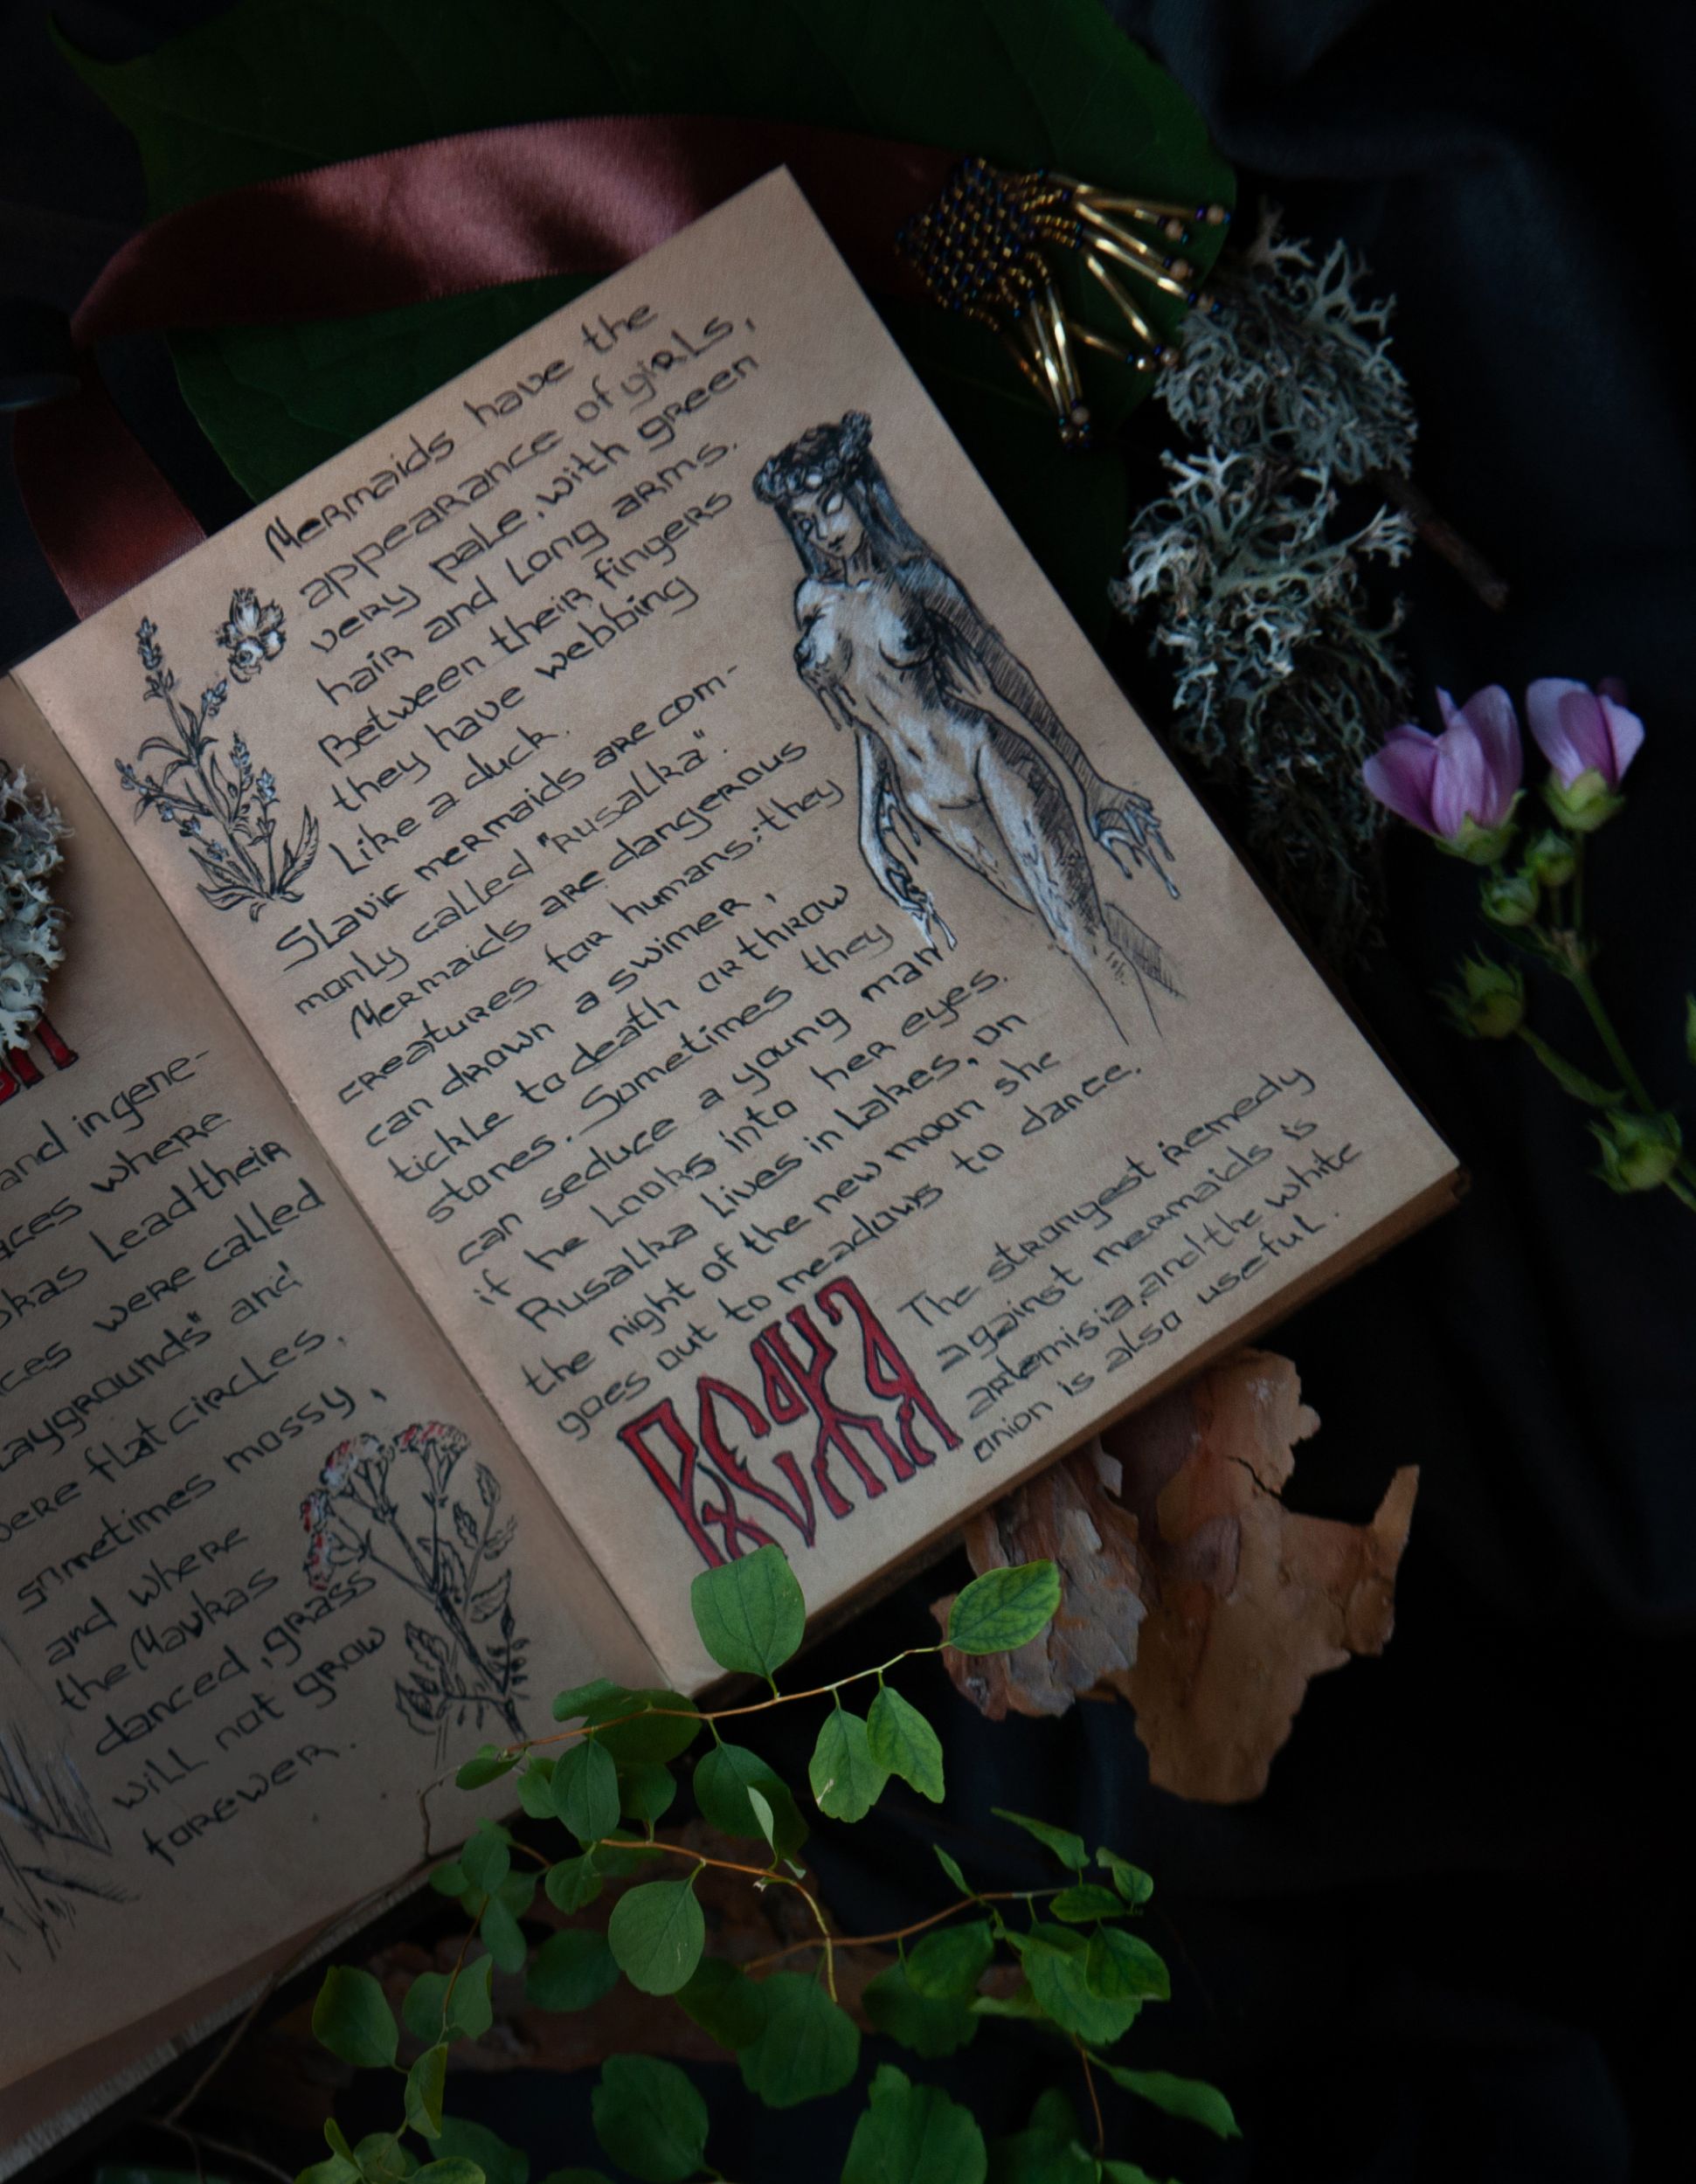 and ingene-
where
Lead their
were called
and
were flat circles,
sometimes mossy,
and where
the Mavkas
danced, grass
will not grow
forewer.
Mermaids have the
appearance of girls,
very pale, with green
hair and Long arms.
Between their fingers
they have webbing
Like a duck.
Slavic mermaids are com-
monly called "rusalka".
Mermaids are dangerous
creatures for humans: they
can drown a swimer,
tickle to death or throw
stones. Sometimes they
can seduce a young man
if he Looks into her eyes.
Rusalka Lives in Lakes, on
the night of the new moon she
goes out to meadows to dance.
The strangest remedy
against mermaids is
artemisia, and the white
onion is also useful.